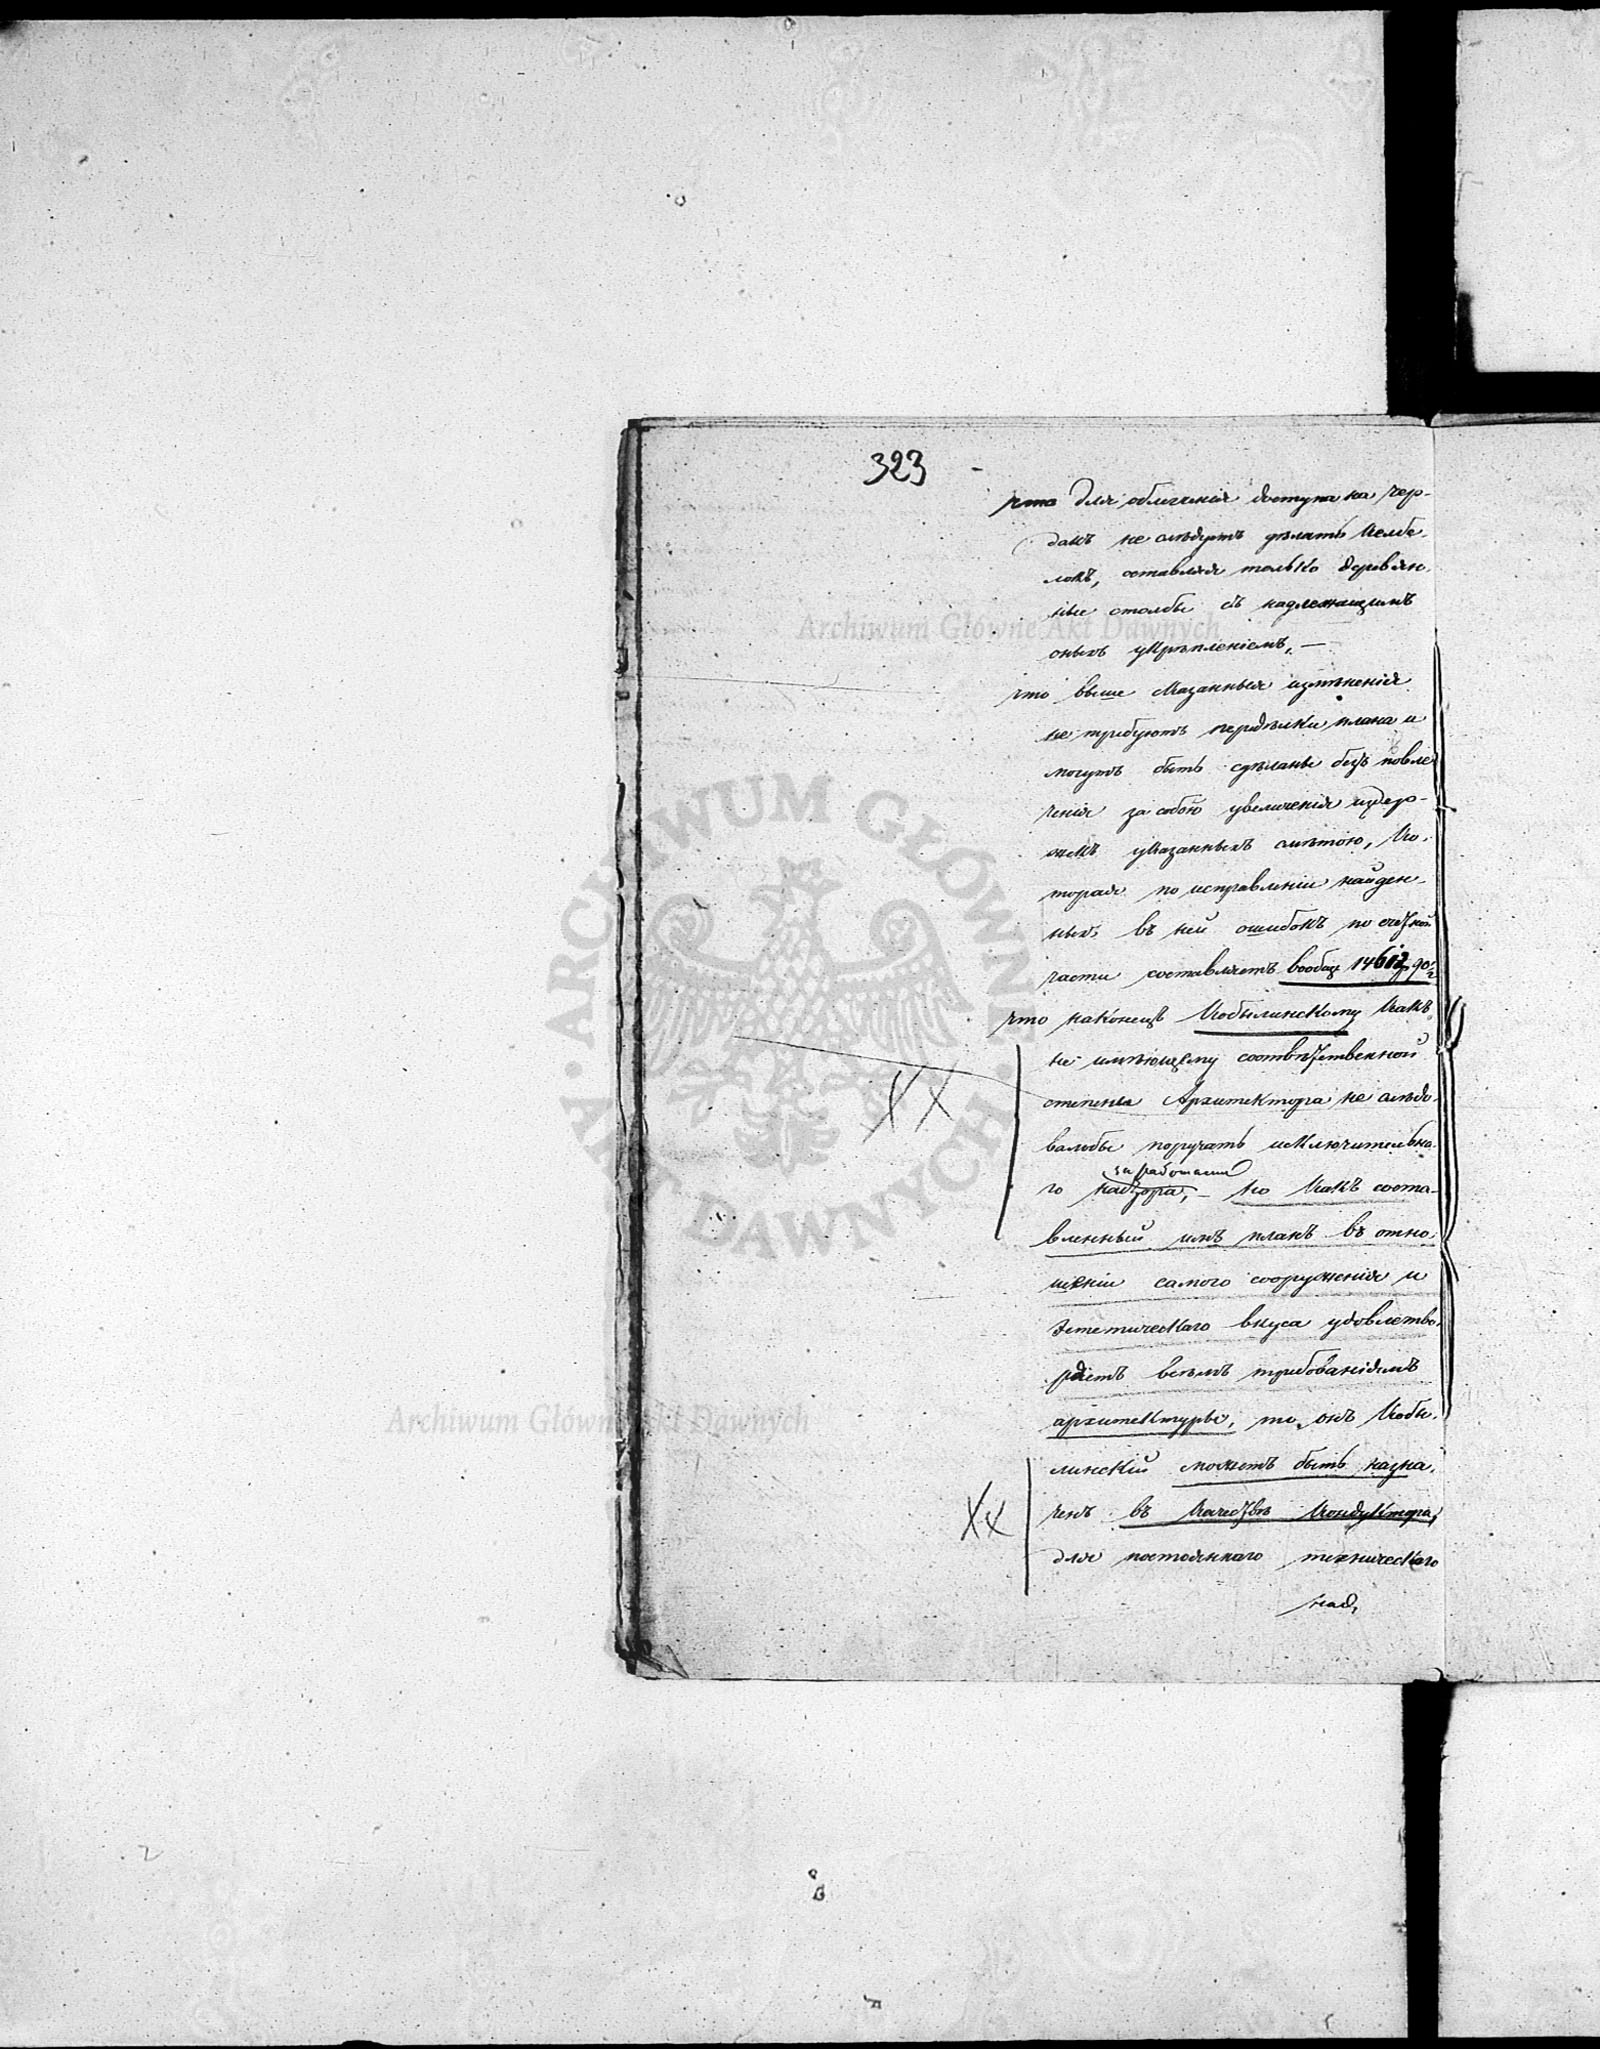 323
что для облегченія доступа на чер-
дакъ не слѣдуетъ дѣлать
локъ, оставляя только деревян-
ные столбы съ надлежащимъ
оныхъ укрѣпленіемъ, —
что выше сказанныя измѣненія
не требуютъ передѣлки плана и
могутъ быть сдѣланы безъ повле
ченія за собою увеличенія издер-
жекъ указанныхъ смѣтою, ко-
торая по исправленіи найден-
ныхъ въ ней ошибокъ по счетной
части составляетъ вообще
что наконецъ Кобылинскому какъ
не имѣющему соотвѣтственной
степени Архитектора не слѣдо-
валобы поручать исключительна-
за работами
го надзора, — но какъ соста-
вленный имъ планъ въ отно-
шеніи самого сооруженія и
Эстетическаго вкуса удовлетво-
ряетъ всѣмъ требованіямъ
архитектуры, то онъ Кобы-
линскій можетъ быть назна-
ченъ въ качествѣ Кондуктора,
для постояннаго техническаго
над-
XX
Xx
Archiwum Główne Akt Dawnych
Archiwum Główne Akt Dawnych
ARCHIWUM GŁÓWNE AKT DAWNYCH